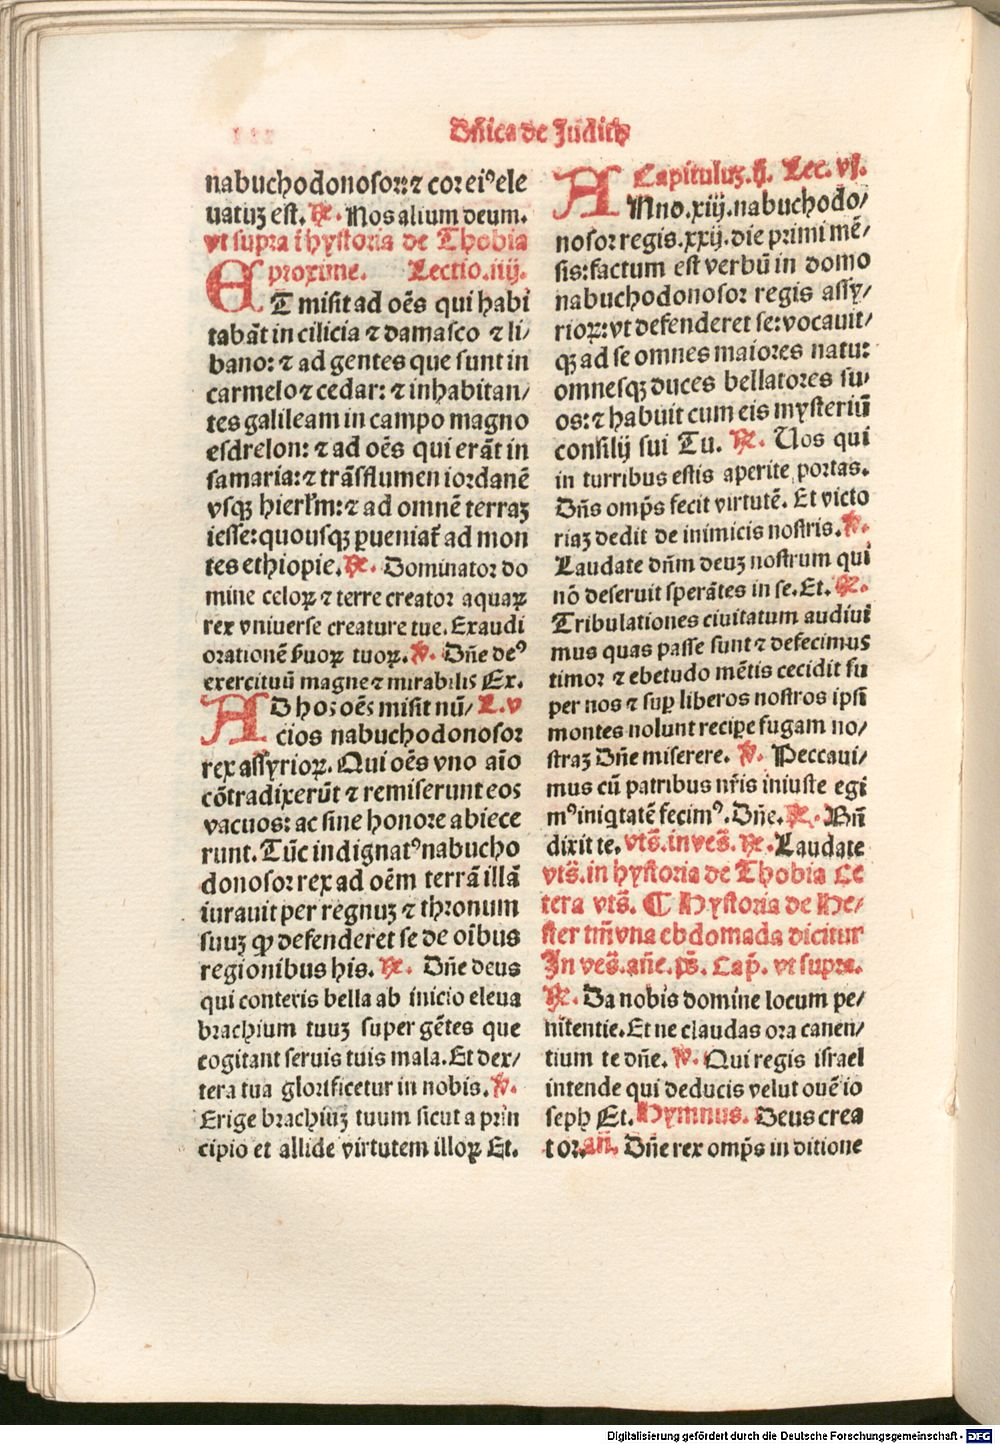 Dñica de Judith
nabuchodonosor: ⁊ cor eiꝰ ele
uatuꝫ est. ℟. Nos alium deum.
vt supra ī hystoria de Thobia
proxime. Lectio .iiij.
ET misit ad oēs qui habi
tabāt in cilicia ⁊ damasco ⁊ li/
bano: ⁊ ad gentes que sunt in
carmelo ⁊ cedar: ⁊ inhabitan/
tes galileam in campo magno
esdrelon: ⁊ ad oēs qui erāt in
samaria: ⁊ trāsflumen iordanē
vsqꝫ hierlm̄: ⁊ ad omnē terraꝫ
iesse: quousqꝫ ꝑueniat᷑ ad mon
tes ethiopie. ℟. Dominator do
mine celoꝝ ⁊ terre creator aquaꝝ
rex vniuerse creature tue. Exaudi
orationē ẜuoꝝ tuoꝝ. ℣. Dñe deꝰ
exercituū magne ⁊ mirabilis Ex.
AD hos oēs misit nū/ L. v
cios nabuchodonosor
rex assyrioꝝ. Qui oēs vno aīo
cōtradixerūt ⁊ remiserunt eos
vacuos: ac sine honore abiece
runt. Tūc indignatꝰ nabucho
donosor rex ad oēm terrā illā
iurauit per regnuꝫ ⁊ thronum
suuꝫ ꝙ defenderet se de oībus
regionibus his. ℟. Dñe deus
qui conteris bella ab inicio eleua
brachium tuuꝫ super gētes que
cogitant seruis tuis mala. Et dex/
tera tua glorificetur in nobis. ℣.
Erige brachiuꝫ tuum sicut a prin
cipio et allide virtutem illoꝝ Et.
Capituluꝫ. ij. Lec. vj.
ANno .xiij. nabuchodo/
nosor regis .xxij. die primi mē/
sis: factum est verbū in domo
nabuchodonosor regis assy/
rioꝝ: vt defenderet se: vocauit/
qꝫ ad se omnes maiores natu:
omnesqꝫ duces bellatores su/
os: ⁊ habuit cum eis mysteriū
consilij sui Tu. ℟. Uos qui
in turribus estis aperite portas.
Dñs omp̄s fecit virtutē. Et victo
riaꝫ dedit de inimicis nostris. ℣.
Laudate dñm deuꝫ nostrum qui
nō deseruit sperātes in se. Et. ℟.
Tribulationes ciuitatum audiui
mus quas passe sunt ⁊ defecimus
timor ⁊ ebetudo mētis cecidit su
per nos ⁊ sup̱ liberos nostros ipsi
montes nolunt recipe fugam no/
straꝫ Dñe miserere. ℣. Peccaui/
mus cū patribus nr̄is iniuste egi
mꝰ iniqtatē fecimꝰ. Dñe. ℟. Bñ
dixit te. vts̄. in ves̄. ℟. Laudate
vts̄. in hystoria de Thobia Ce
tera vts̄. ¶ Hystoria de He/
ster tm̄ vna ebdomada dicitur
In ves̄. añe. ps̄. Cap̄. vt supra.
℟. Da nobis domine locum pe/
nitentie. Et ne claudas ora canen/
tium te dñe. ℣. Qui regis israel
intende qui deducis velut ouē io
seph Et. Hymnus. Deus crea
tor. añ. Dñe rex omp̄s in ditione
Digitalisierung gefördert durch die Deutsche Forschungsgemeinschaft - DFG